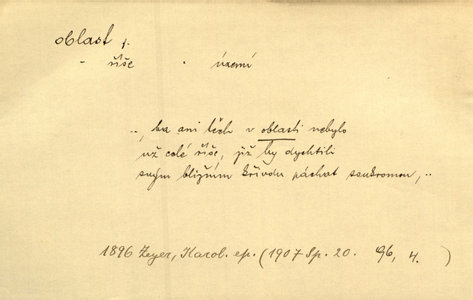 oblast f.
- říše - území
„ ba ani těch v oblasti nebylo
už celé říše, již by dychtili
svým bližním křivdu páchat soukromou, „
1896 Zeyer, Karol. ep. (1907 Sp. 20. 96, 4.)